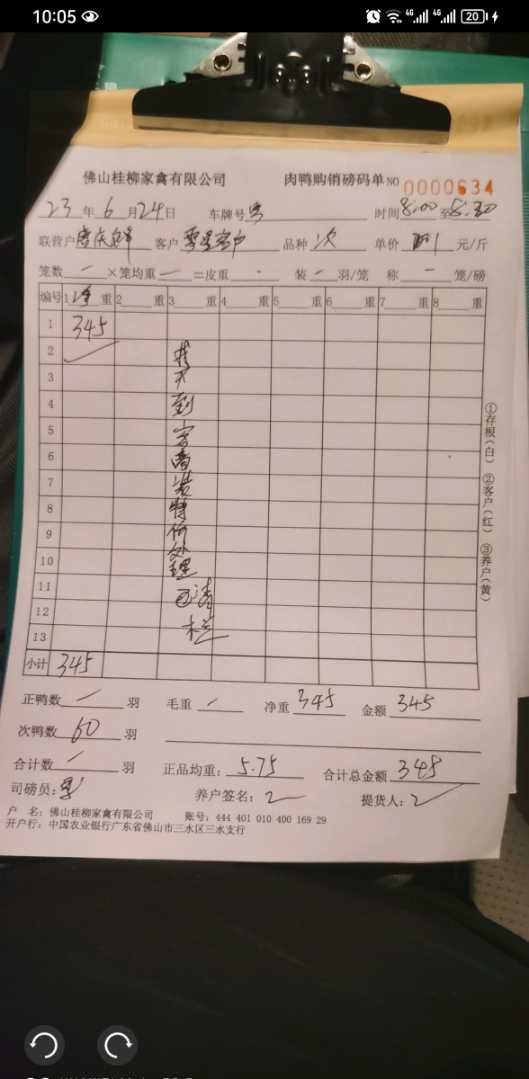 10:05
4G 4G 20
佛山桂柳家禽有限公司 肉鸭购销磅码单 NO 0000634
23年6月24日 车牌号 时间8:00至8:30
联营户 客户零星客户 品种次 单价 元/斤
笼数一×笼均重一=皮重 装一羽/笼 称一笼/磅
编号 1净重 2 重 3 重 4 重 5 重 6 重 7 重 8 重
1 345
2
3
4
5
6
7
8
9
10
11
12
13
到
特
价
处
理
已清
栏
小计 345
①存根(白) ②客户(红) ③养户(黄)
正鸭数一羽 毛重一 净重345 金额345
次鸭数60羽
合计数一羽 正品均重:5.75 合计总金额345
司磅员: 养户签名: 提货人:
户 名:佛山桂柳家禽有限公司 账号:444 401 010 400 169 29
开户行:中国农业银行广东省佛山市三水区三水支行